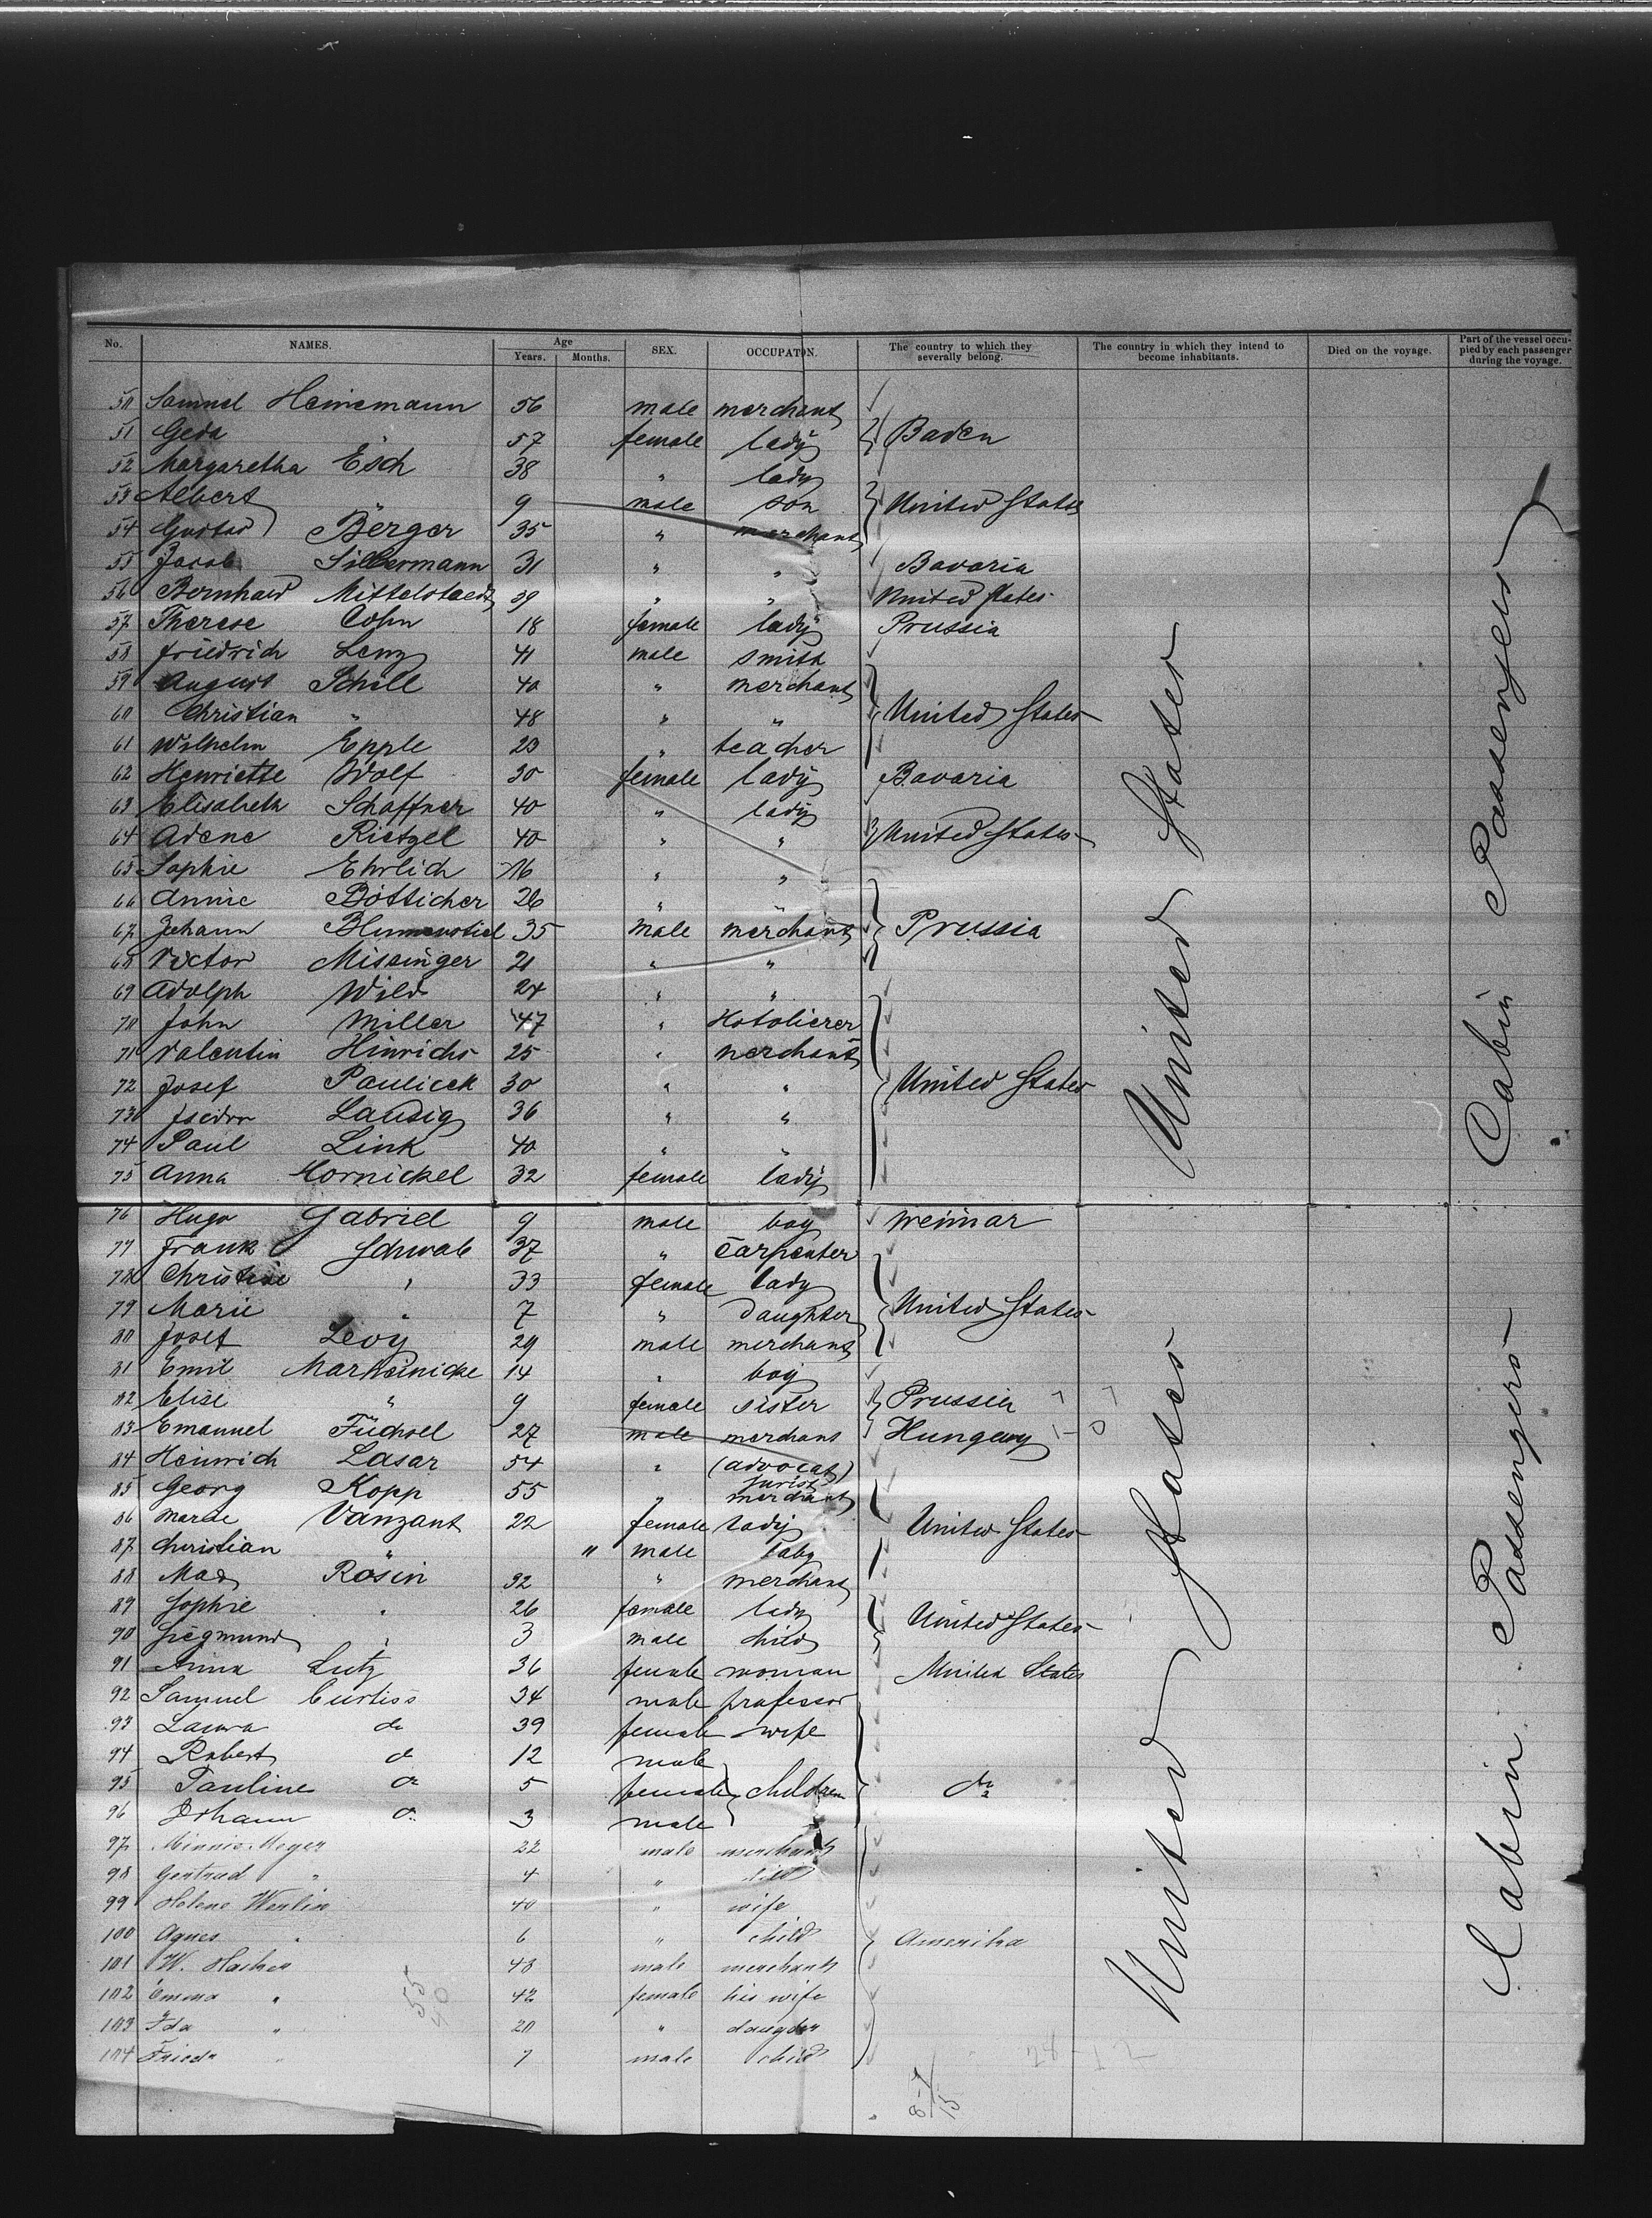 No. NAMES. Age Years. Months. SEX. OCCUPATON. The country to which they severally belong. The country in which they intend to become inhabitants. Died on the voyage. Part of the vessel occupied by each passenger during the voyage.
50 Samuel Heinemann 56 male merchant
51 Geda " 57 female lady Baden
52 Margaretha Esch 38 " lady
53 Albert " 9 male son United States
54 Gustav Berger 35 " merchant
55 Jacob Silbermann 31 " " Bavaria
56 Bernhard Mittelstaedt 39 " " United States
57 Therese Cohn 18 female lady Prussia
58 Friedrich Lenz 41 male smith
59 August Schill 40 " merchant
60 Christian " 48 " " United States
61 Wilhelm Epple 23 " teacher
62 Henriette Wolf 30 female lady Bavaria
63 Elisabeth Schaffner 40 " lady
64 Adene Rietzel 40 " " United States
65 Sophie Ehrlich 16 " "
66 Annie Bötticher 26 " "
67 Johann Blumenstiel 35 male merchant Prussia
68 Victor Missinger 21 " "
69 Adolph Wild 24 " "
70 John Miller 47 " Hotelierer
71 Valentin Hinrichs 25 " merchant
72 Josef Paulicek 30 " " United States
73 Isidor Laudig 36 " "
74 Paul Link 40 " "
75 Anna Hornickel 32 female lady
76 Hugo Gabriel 9 male boy Weimar
77 Frank Schwab 37 " Carpenter
78 Christine " 33 female lady
79 Marie " 7 " daughter United States
80 Josef Levy 29 male merchant
81 Emil Marheinicke 14 " boy
82 Elise " 9 female sister Prussia
83 Emanuel Füchsel 27 male merchant Hungary
84 Heinrich Lasar 54 " (advocat) Jurist
85 Georg Kopp 55 " merchant
86 Vanzant 22 female lady United States
87 Christian " " male baby
88 Max Rosin 32 " merchant
89 Sophie " 26 female lady United States
90 Siegmund " 3 male child
91 Anna Lutz 36 female woman United States
92 Samuel Curtiss 34 male professor
93 Laura do 39 female wife
94 Robert do 12 male
95 Pauline do 5 female children do
96 Johann do 3 male
97 Minnie Meyer 22 male merchant
98 Gertrud " 4 " child
99 Helene 40 " wife
100 Agnes " 6 " child Amerika
101 W. 43 male merchant
102 Emma " 42 female his wife
103 Ida " 20 " daugder
104 Frieda " 7 male child
United States
United States
Cabin Passengers
Cabin Passengers
28 12